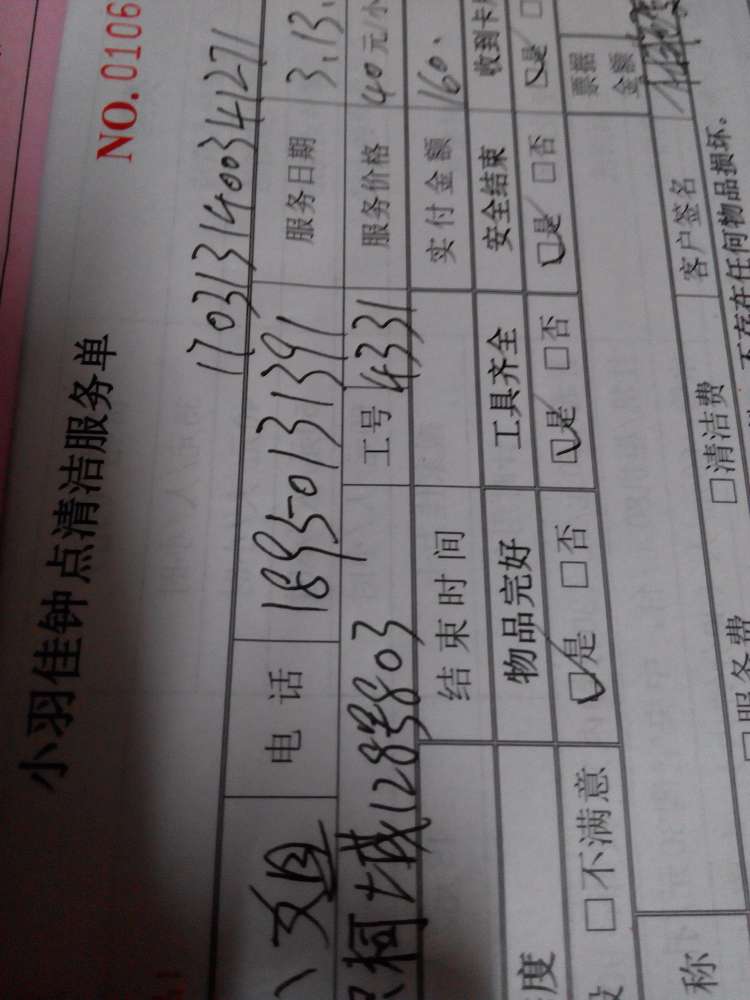 小羽佳钟点清洁服务单 NO.0106
1703131400341271
电话 18950131391 服务日期 3.13.
柯 城128号803 工号 4331 服务价格 40元/小
结束时间 实付金额 160.
度 物品完好 工具齐全 安全结束 收到卡
□不满意 □是 □否 □是 □否 □是 □否 □是
票据金额
称 客户签名
□服务费 □清洁费 不存在任何物品损坏。